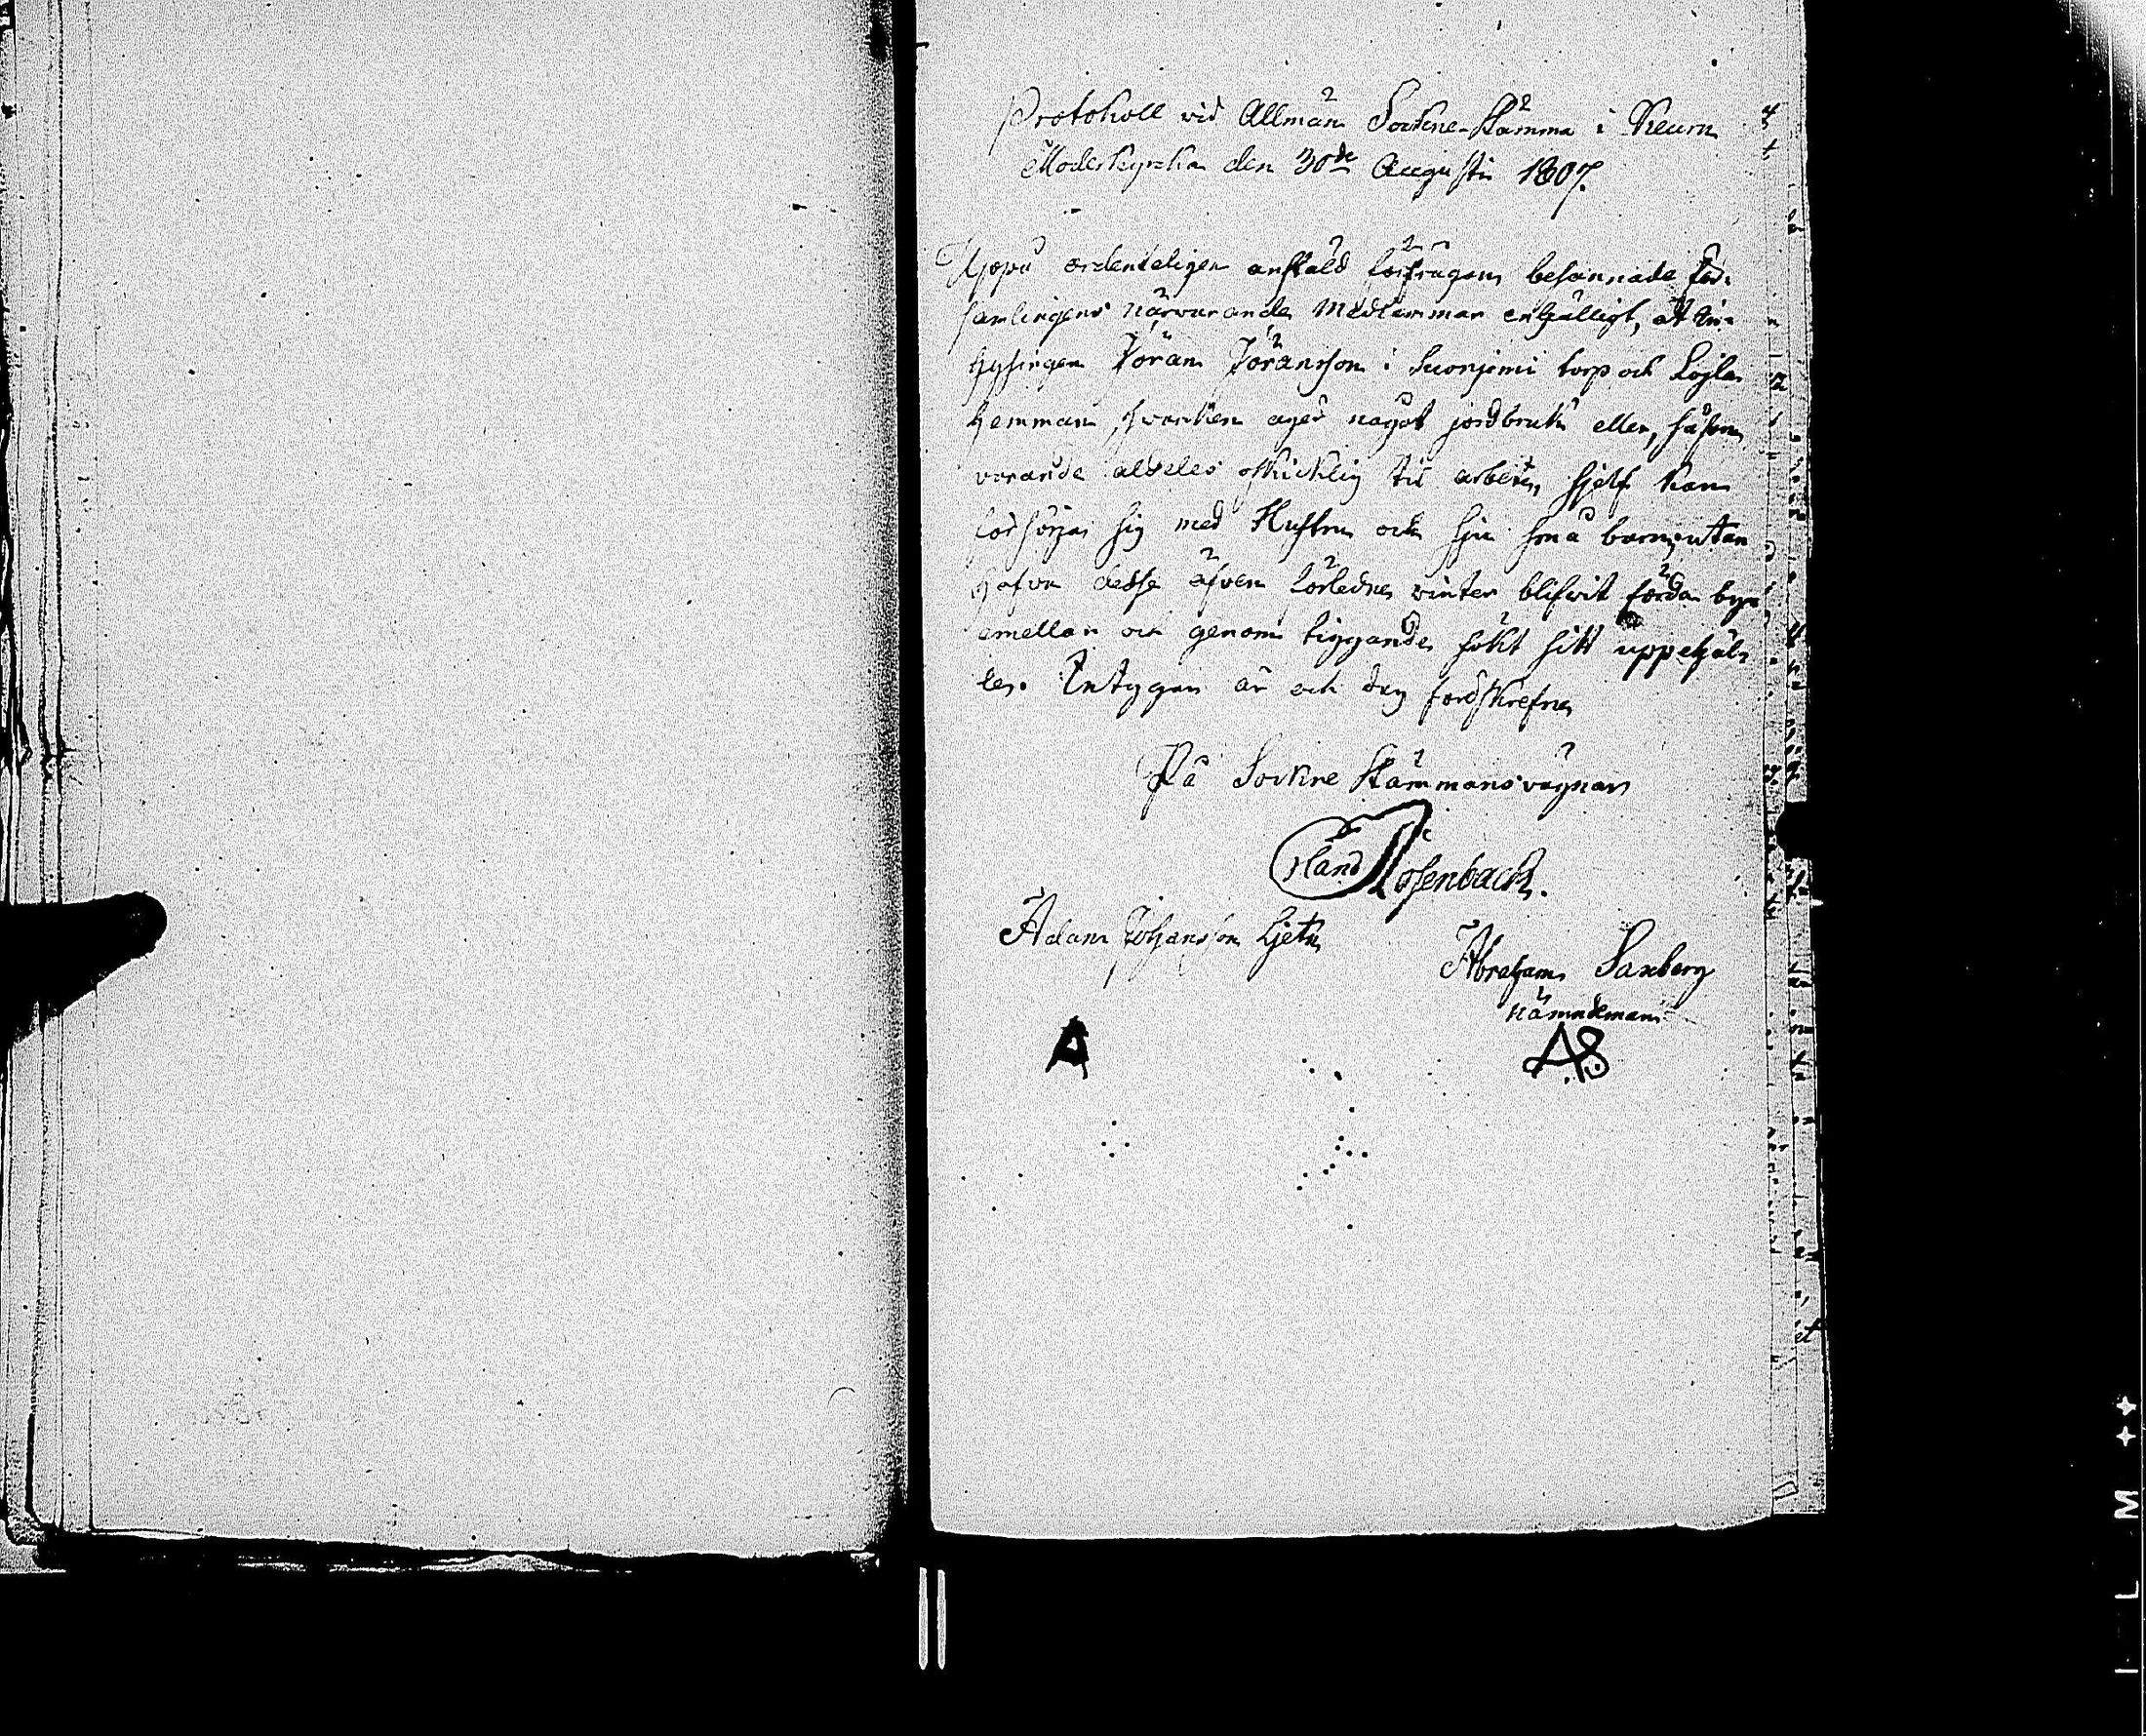 Protokoll vid Allmän Sockne-Stämma i Keuru
Moderkyrka den 30de Augusti 1807.
Uppå ordenteligen anstäld förfrågan besannade för-
samlingens närvarande medlemmar enhälligt, at In-
hysingen Jöran Jöransson i torp och
hemman, hvarken äger något jordbruk eller, såsom
varande aldeles oskicklig til arbete, sjelf kan
försörja sig med Hustru och sju små barn, utan
hafva desse äfven förledne vinter blifvit förda by-
emellan och genom tiggande sökt sitt uppehäl-
le. Intygar år och dag förrskrefne
På Sockne Stämmans vägnar
Rosenback.
Adam Johansson
Abraham Saxberg
Nämndeman
A
AS